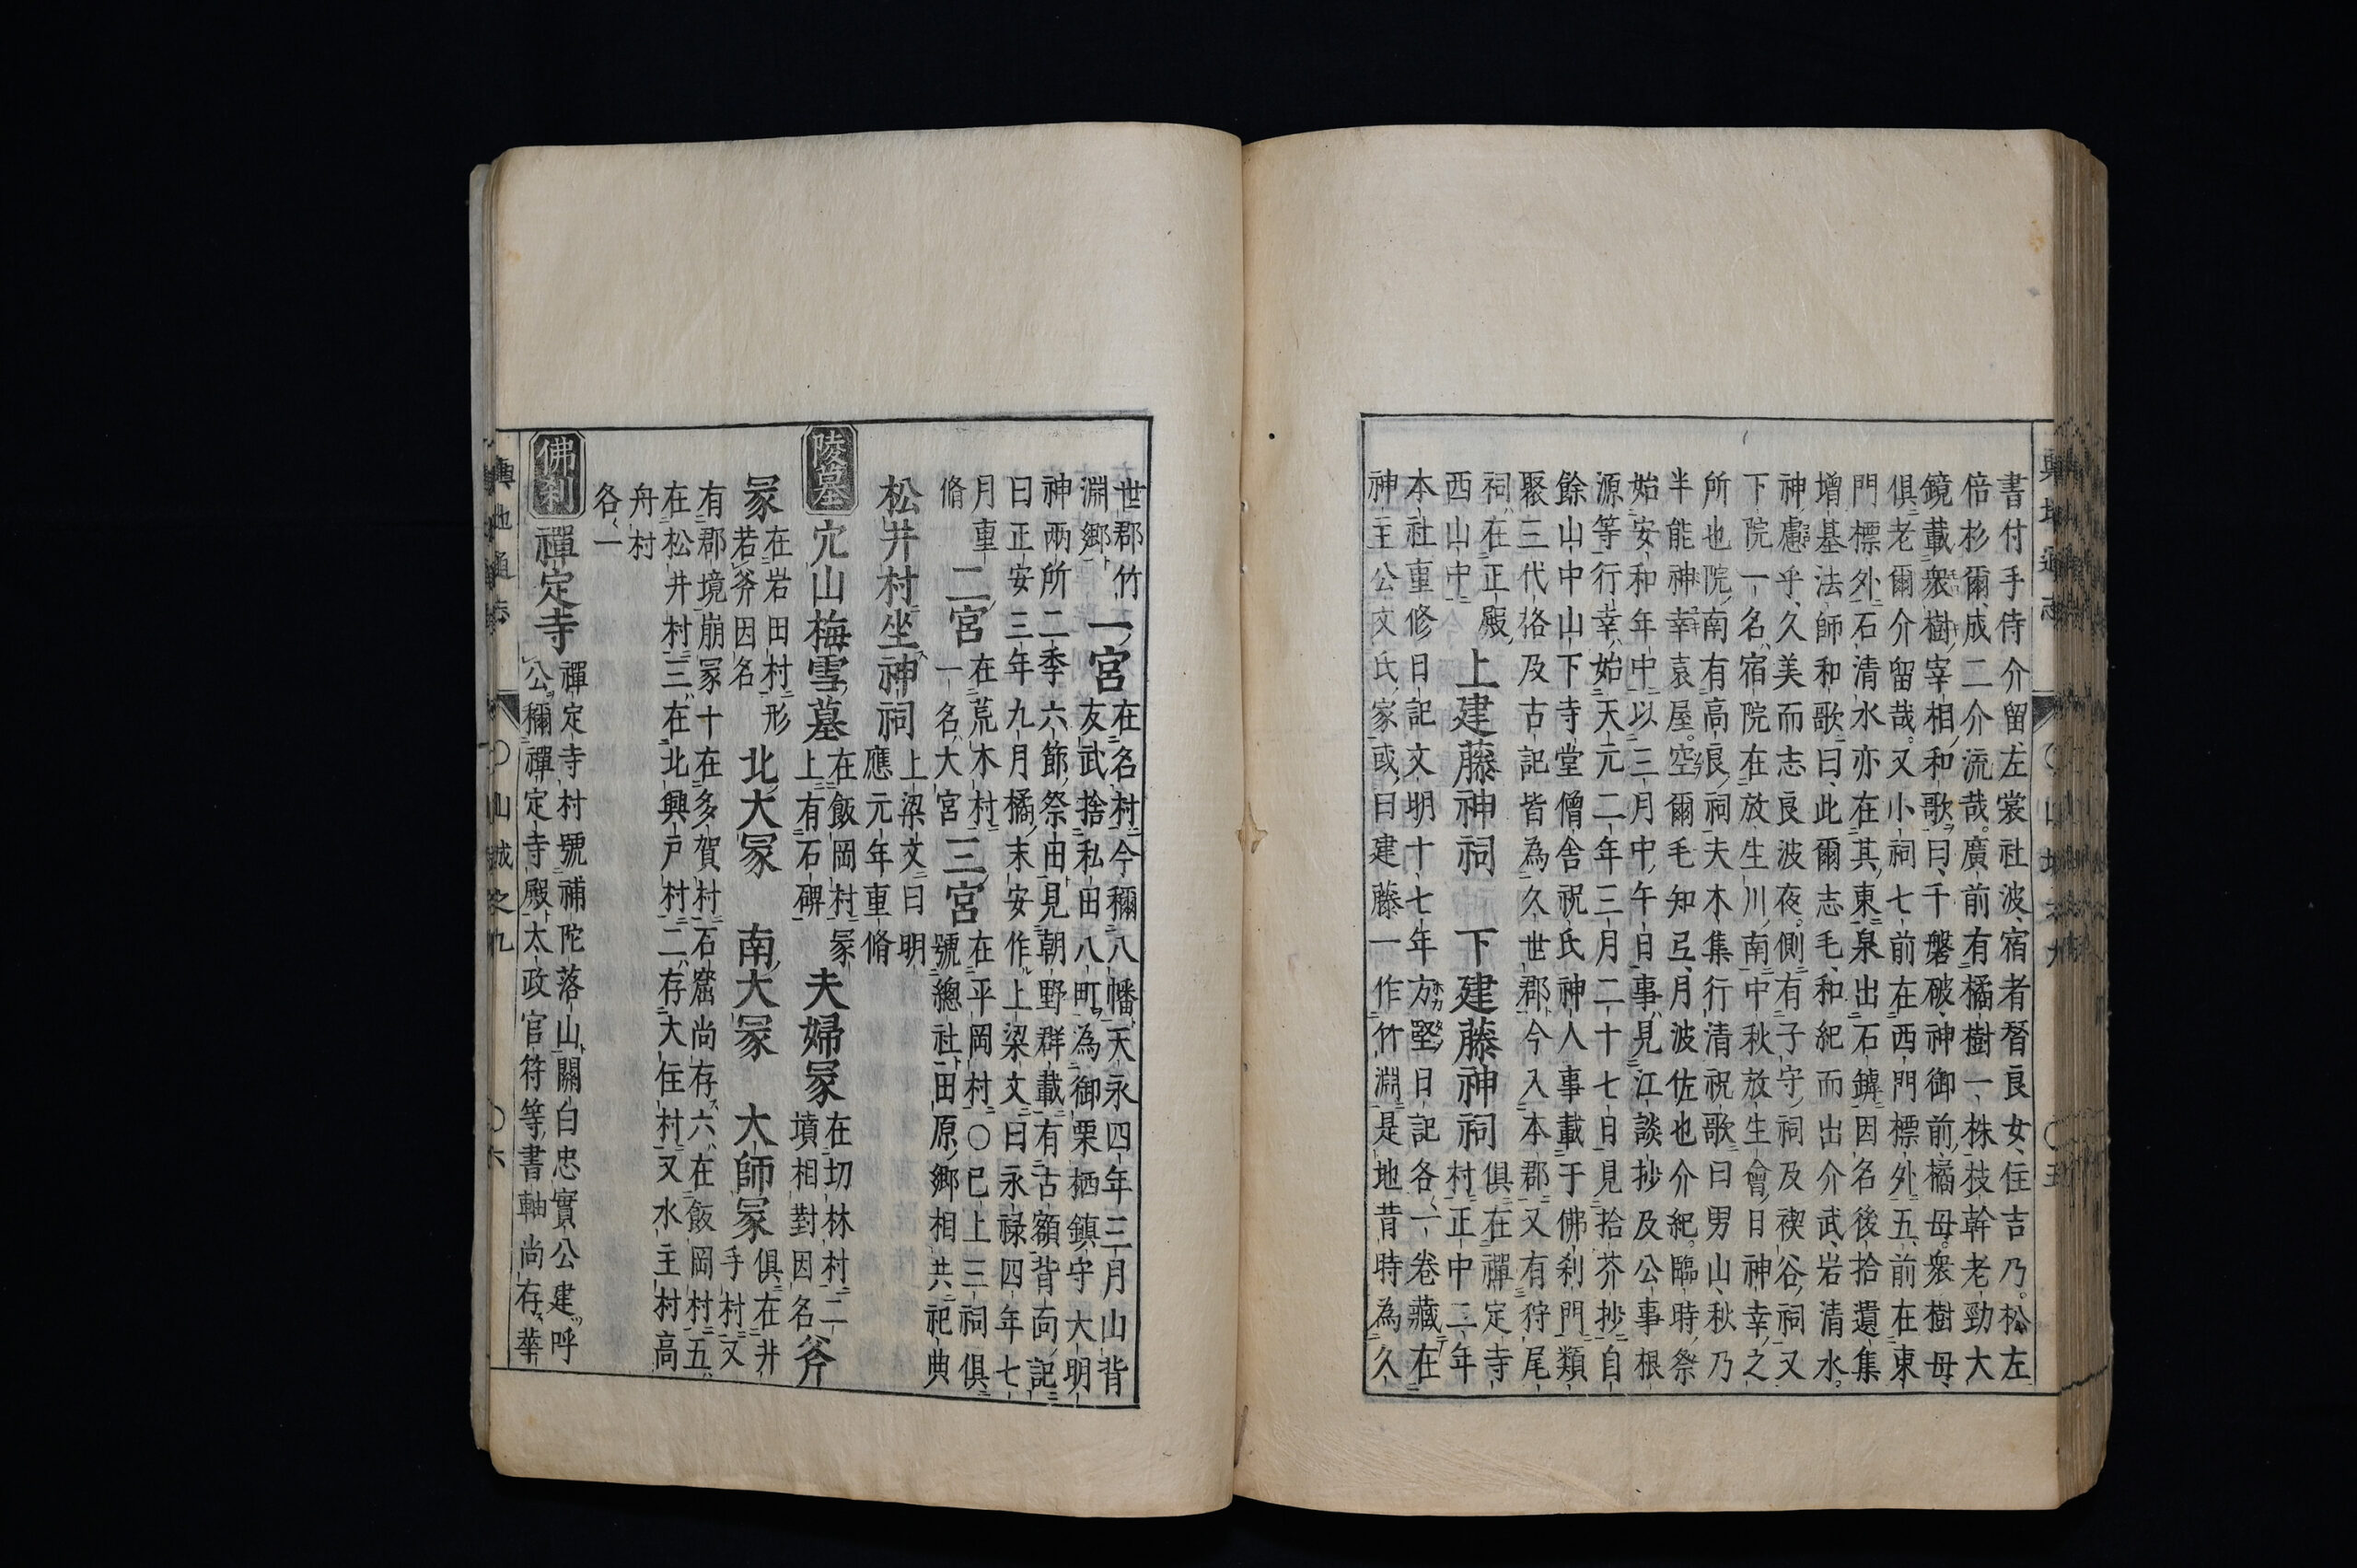 書付手侍介留左裳社波宿者晉良女住吉乃松左
倍杉爾成二介流哉廣前有橘樹一株技幹老勁大
鏡載衆樹宰相和歌曰千磐破神御前橘母衆樹母
俱老爾介留哉又小祠七前在西門標外五前在東
門標外石清水亦在其東泉出石鏬因名後拾遺集
增基法師和歌曰此爾志毛和紀而出介武岩清水
神慮乎久美而志良波夜側有子守祠及禊谷祠又
下院一名宿院在放生川南中秋放生會日神幸之
所也院南有高良祠夫木集行清祝歌曰男山秋乃
半能神幸哀屋空爾毛知弖月波佐也介紀臨時祭
始安和年中以三月中午日事見江談抄及公事根
源等行幸始天元二年三月二十七日見拾芥抄自
餘山中山下寺堂僧舍祝氏神人事載于佛刹門類
聚三代格及古記皆為久世郡今入本郡又有狩尾
祠在正殿西山中 上建藤神祠 下建藤神祠 俱在禪定寺村正中二年
本社重修日記文明十七年方堅日記各一卷藏在
神主公文氏家或曰建藤一作竹淵是地昔時為久
世郡竹淵鄉 一宮 在名村今稱八幡天永四年三月山背友武捨私田八町為御栗栖鎮守大明
神兩所二季六節祭田見朝野群載有古額背面記
曰正安三年九月橘末安作上梁文曰永祿四年七
月重脩 二宮 在荒木村一名大宮 三宮 在平岡村〇已上三祠俱號總社田原鄉相共祀典
松井村坐神祠 上梁文曰明應元年重脩
陵墓 穴山梅雪墓 在飯岡村冢上有石碑 夫婦冢 在切林村二墳相對因名 斧
冢 在岩田村形若斧因名 北大冢 南大冢 大師冢 俱在井手村又
有郡境崩冢十在多賀村石窟尚存六在飯岡村五
在松井村三在北興戶村二存大住村又水主村高
舟村各一
佛刹 禪定寺 禪定寺村號補陀落山關白忠實公建呼公稱禪定寺殿太政官符等書軸尚存華
輿地通志
〇山城之九
〇六